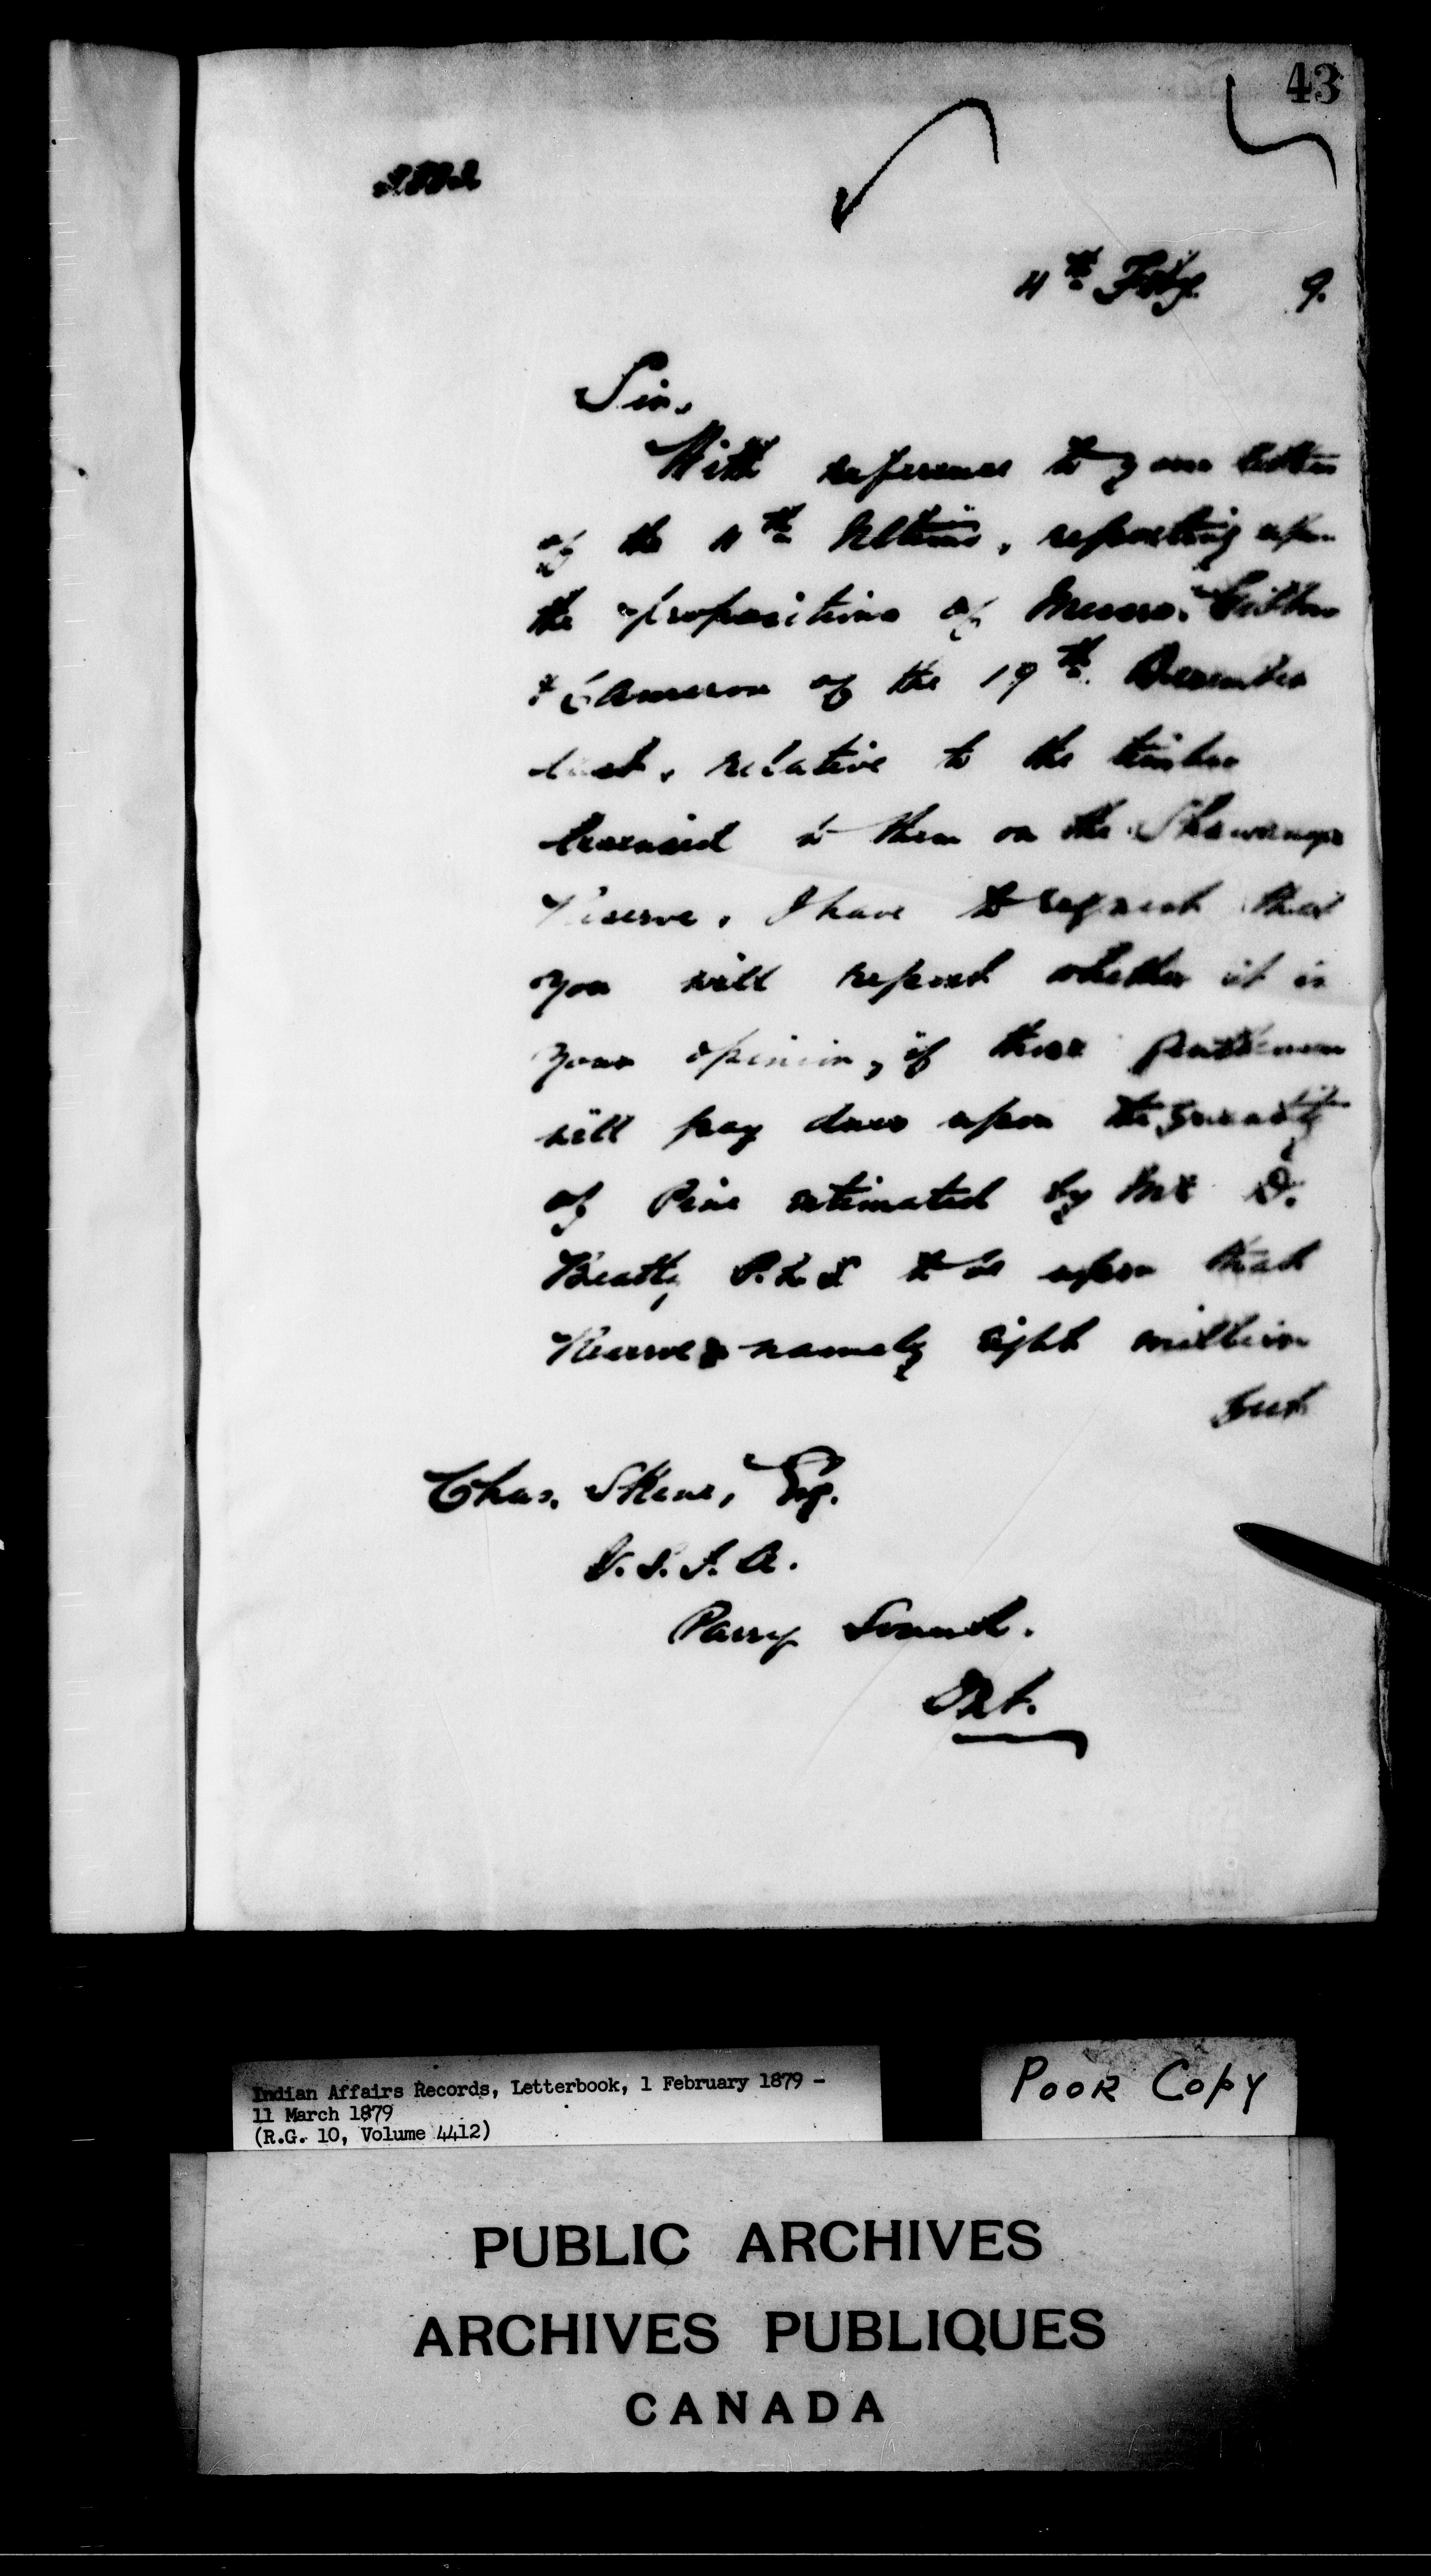 43
4th Feby. 9.
Sir,
With reference to your letter
of the 4th Ultimo, reporting upon
the propositions of Messrs.
& Cameron of the 19th December
last, relative to the timber
licensed to them on the Shawanaga
Reserve, I have to request that
you will report whether it is
your opinion, if these gentlemen
will pay dues upon the quantity
of Pine estimated by Mr D.
Beatty P.L.S to be upon that
Reserve, namely eight million
feet
Chas. Skene, Esq.
V.S.I.A.
Parry Sound.
Ont.
Indian Affairs Records, Letterbook, 1 February 1879 -
11 March 1879
(R.G. 10, Volume 4412)
POOR COPY
PUBLIC ARCHIVES
ARCHIVES PUBLIQUES
CANADA